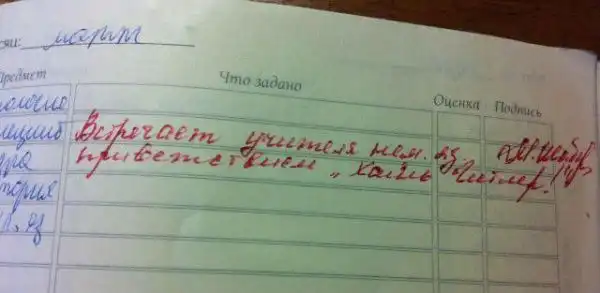 сяц: март
Предмет Что задано Оценка Подпись
Встречает учителя нем. яз
приветствием „Хайль Гитлер!"
тория